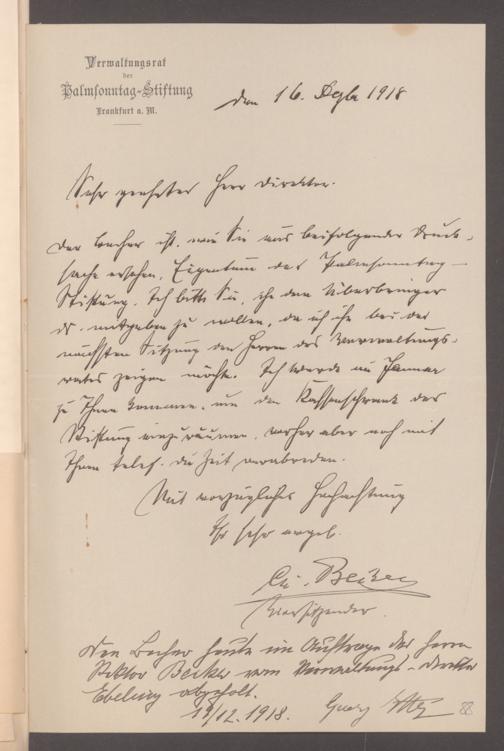 Verwaltungsrat
der
Palmsonntag-Stiftung
Frankfurt a. M.
den 16. Dezbr 1918
Sehr geehrter Herr Direktor.
Der Becher ist, wie Sie aus beifolgender Druck-
sache ersehen, Eigentum der Palmsonntag-
Stiftung. Ich bitte Sie, ihn dem Überbringer
ds. mitgeben zu wollen, da ich ihn bei der
nächsten Sitzung den Herren des Verwaltungs-
rates zeigen möchte. Ich werde im Januar
zu Ihnen kommen, um den Kassenschrank der
Stiftung einzuräumen, vorher aber noch mit
Ihnen telef. die Zeit verabreden.
Mit vorzüglicher Hochachtung
Ihr sehr ergeb.
Becker
Vorsitzender.
Den Becher heute im Auftrage des Herrn
Rektor Becker vom Verwaltungs-Direktor
Ebeling abgeholt.
/12. 1918. Georg
88